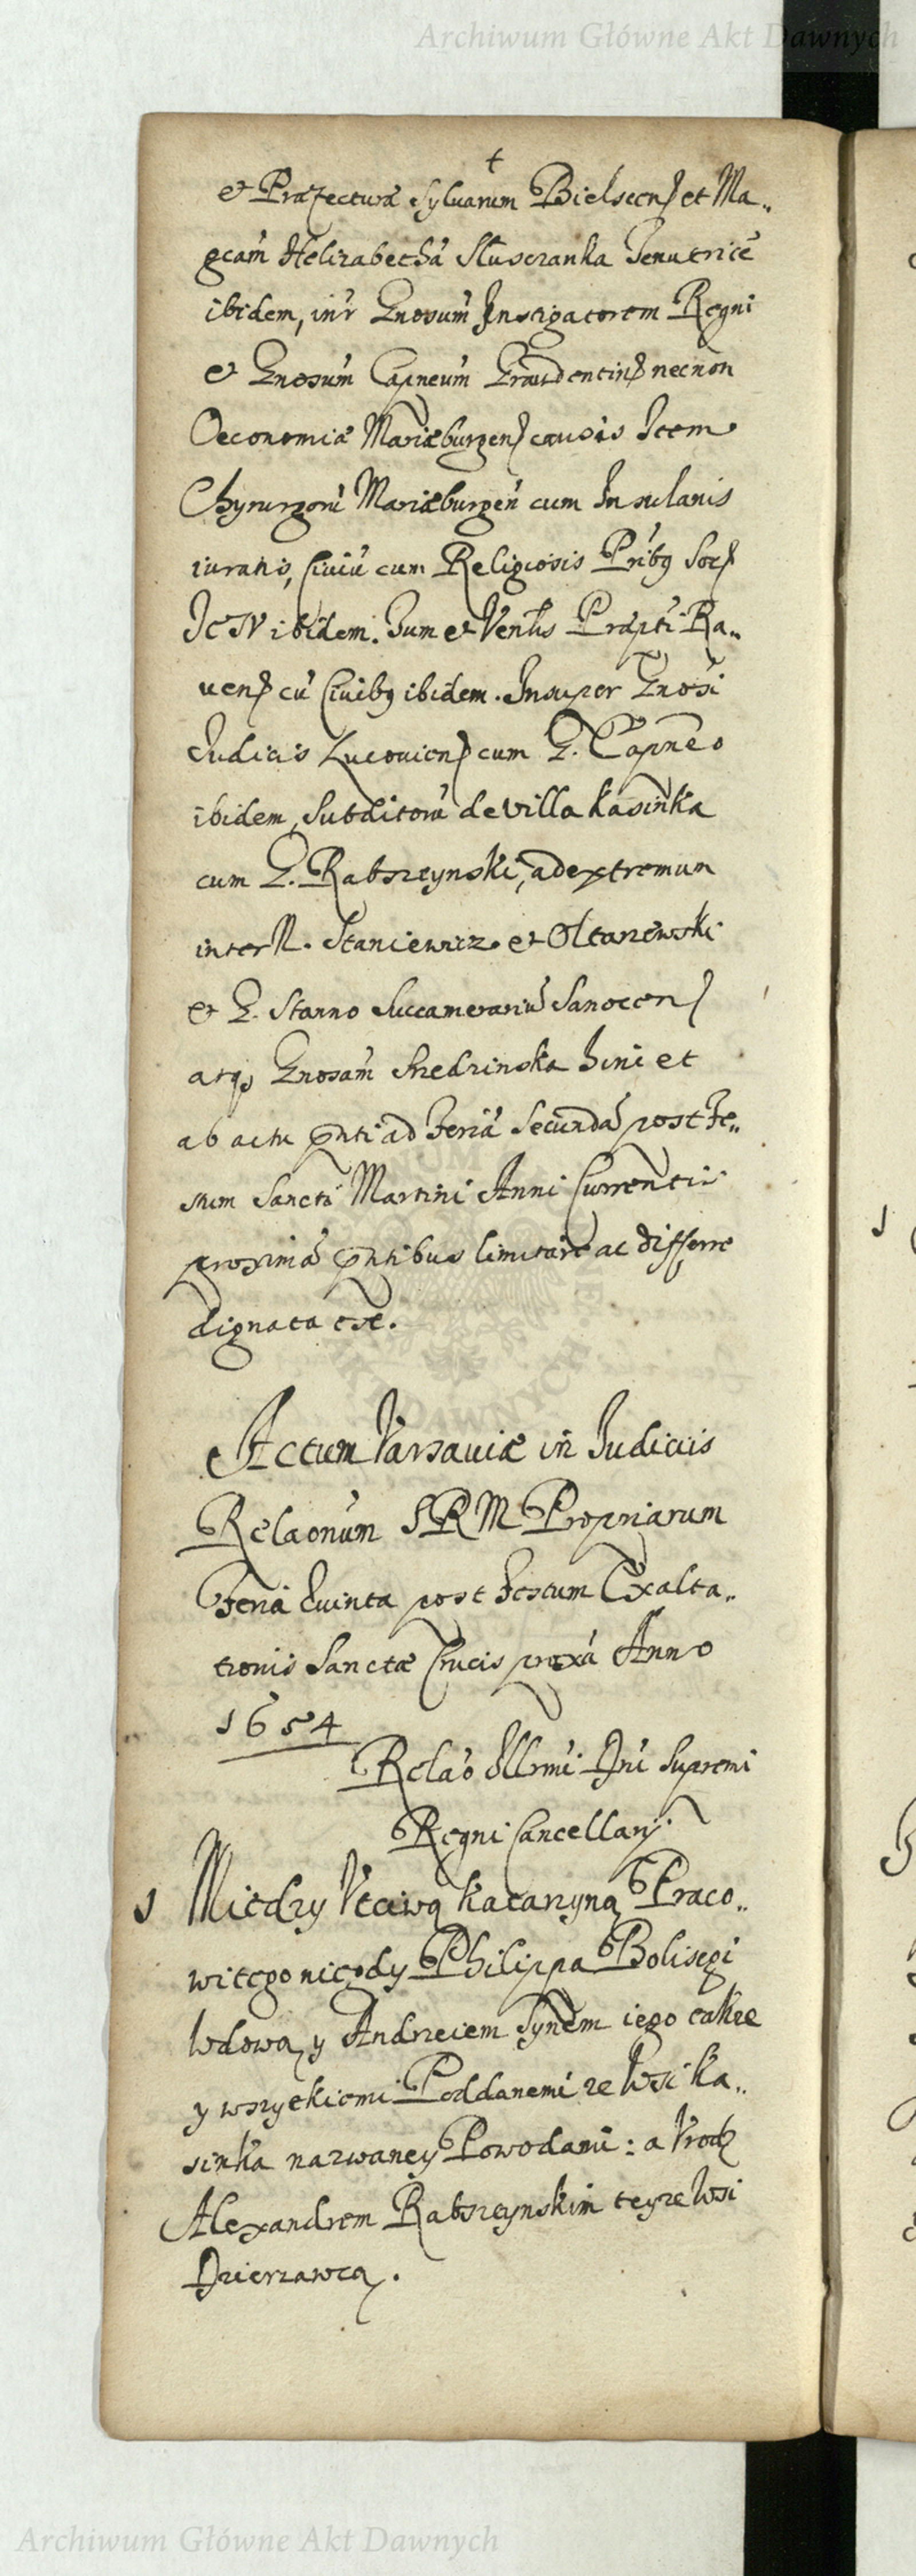 Archiwum Główne Akt Dawnych
et Præfecturæ Sylvarum Bielscen et Ma„
gcam Helizabethã Sluseranka Tenutricẽ
ibidem, intr Gnosum Instigatorem Regni
et Gnosum Capneum Graudentin necnon
Oeconomiæ Mariæburgen causis Item
Chyrurgorũ Mariæburgeñ cum Insulanis
iuratis, Civiũ cum Religiosis Pribq Soc
JCN ibidem. Tum et Venlis Præpti Ra„
ven cũ Civibq ibidem. Insuper Gnosi
Judicis Lucovien cum G. Capneo
ibidem, Subditorũ de villa Kasinka
cum G. Rabszynski, ad extremum
inter N. Staniewicz et Oltarzewski
et G. Stanno Succamerariũ Sanocen
atq Gnosam Srzedzinska hinc et
ab actu pnti ad Feriã Secundã post Fe„
stum Sancti Martini Anni Currentis
proximã pntibus limitare ac differre
dignata est.
Actum Varsaviæ in Judiciis
Relaonum SRM Propriarum
Feria Quinta post Festum Exalta„
tionis Sanctæ Crucis proxã Anno
1654
Relão Illrmi Dni Supremi
Regni Cancellarij.
1 Miedzy Vtciwą Katarzyną Praco„
witego niegdy Philippa Bolisegi
Wdową, y Andrzeiem Synem iego także
y wszytkiemi Poddanemi ze Wsi Ka„
sinka nazwaney Powodami: a Vrodz
Alexandrem Rabszynskim teyze Wsi
Dzierzawcą.
Archiwum Główne Akt Dawnych